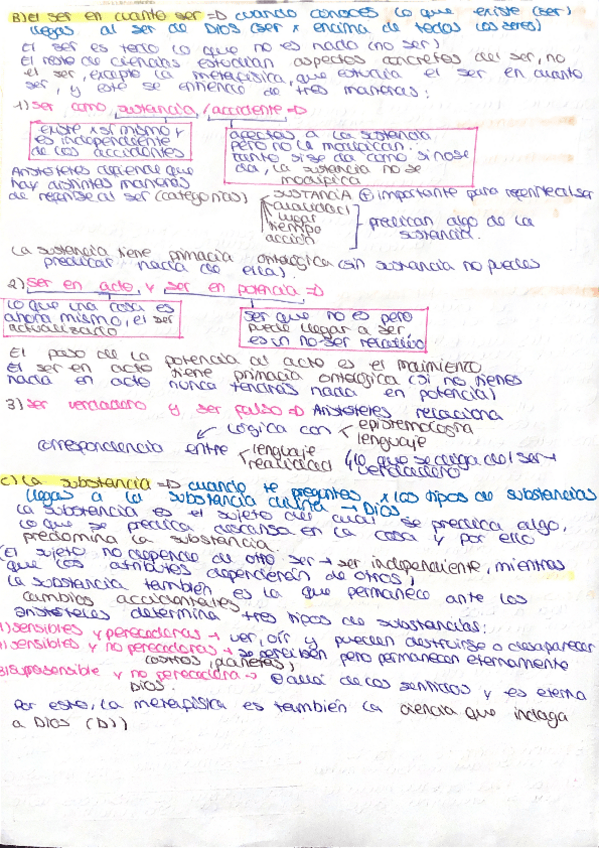 B) el ser en cuanto ser => cuando conoces lo que existe (ser)
llegas al ser de Dios (ser x encima de todos los seres)
El ser es todo lo que no es nada (no ser)
El resto de ciencias estudian aspectos concretos del ser, no
el ser, excepto la metafísica, que estudia el ser en cuanto
ser, y esto se entiende de tres maneras:
1) ser como sustancia / accidente =>
existe x sí mismo y
es independiente
de los accidentes
afectas a la sustancia
pero no la modifican.
tanto si se da como si no se
da, la sustancia no se
modifica
Aristóteles defiende que
hay distintas maneras
de referirse al ser (categorías)
SUSTANCIA importante para referirte al ser
cualidad
lugar
tiempo
acción
predican algo de la
sustancia.
La sustancia tiene primacía ontológica (sin sustancia no puedes
predicar nada de ella).
2) ser en acto, y ser en potencia =>
Lo que una cosa es
ahora mismo, el ser
actualizado
ser que no es pero
puede llegar a ser,
es un no-ser relativo
El paso de la potencia al acto es el movimiento
el ser en acto tiene primacía ontológica (si no tienes
nada en acto nunca tendrás nada en potencia)
3) ser verdadero y ser falso => Aristóteles relaciona
Lógica con
epistemología
lenguaje
correspondencia entre
lenguaje
realidad
lo que se diga del ser →
verdadero
C) La substancia => cuando te preguntes x los tipos de substancias
llegas a la substancia divina → Dios
La substancia es el sujeto del cual se predica algo,
lo que se predica descansa en la cosa y por ello
predomina la substancia.
(El sujeto no depende de otro ser → ser independiente, mientras
que los atributos dependerán de otros)
La substancia también es la que permanece ante los
cambios accidentales
Aristóteles determina tres tipos de substancias:
1) sensibles y perecederas → ver, oír y pueden destruirse o desaparecer
sensibles y no perecederas → se perciben pero permanecen eternamente
(astros, planetas)
3) suprasensible y no perecedera → allá de los sentidos y es eterna
DIOS.
Por esto, la metafísica es también la ciencia que indaga
a Dios (D))